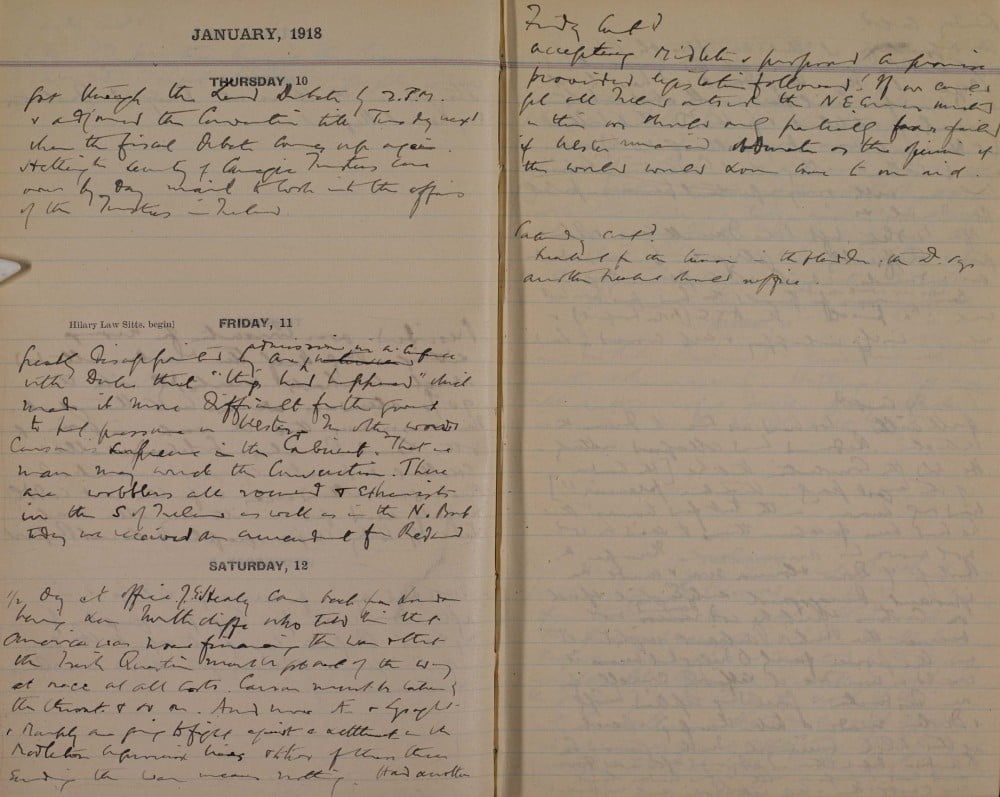 JANUARY, 1918
THURSDAY, 10
Got through the Land Debate by 2 P.M.
& adjourned the Convention till Tuesday next
when the fiscal Debate comes up again.
Hetherington Secretary of Carnegie Trustees came
over by Day mail to look into the affairs
of the Trustees in Ireland.
Hilary Law Sitts. begin]
FRIDAY, 11
Greatly disappointed by an admission in a
with Duke that "things had happened" which
made it more difficult for the Govmt
to put pressure on Ulster. In other words
Carson is supreme in the Cabinet. That
man may wreck the Convention. There
are wobblers all round & extremists
in the S of Ireland as well as in the N. But
today we received an amendment from Redmond
SATURDAY, 12
½ Day at office. J. E. Healy came back from London
having seen Northcliffe who told him that
America was now financing the war & that
the Irish Question must be got out of the way
at once at all costs. Carson must be taken by
the throat & so on. And more
& Murphy are going to fight against a settlement on the
Midleton compromise lines & to them
Ending the war means nothing. Had another
Friday contd
accepting Midleton's proposed compromise
provided legislation followed! If we could
get all Ireland outside the N E Corner united
in this we should only partially fail
if Ulster remained obdurate as the opinion of
the world would soon come to our aid.
Saturday contd.
treatment for the tumour in the bladder. the Dr. says
another treatment should suffice.